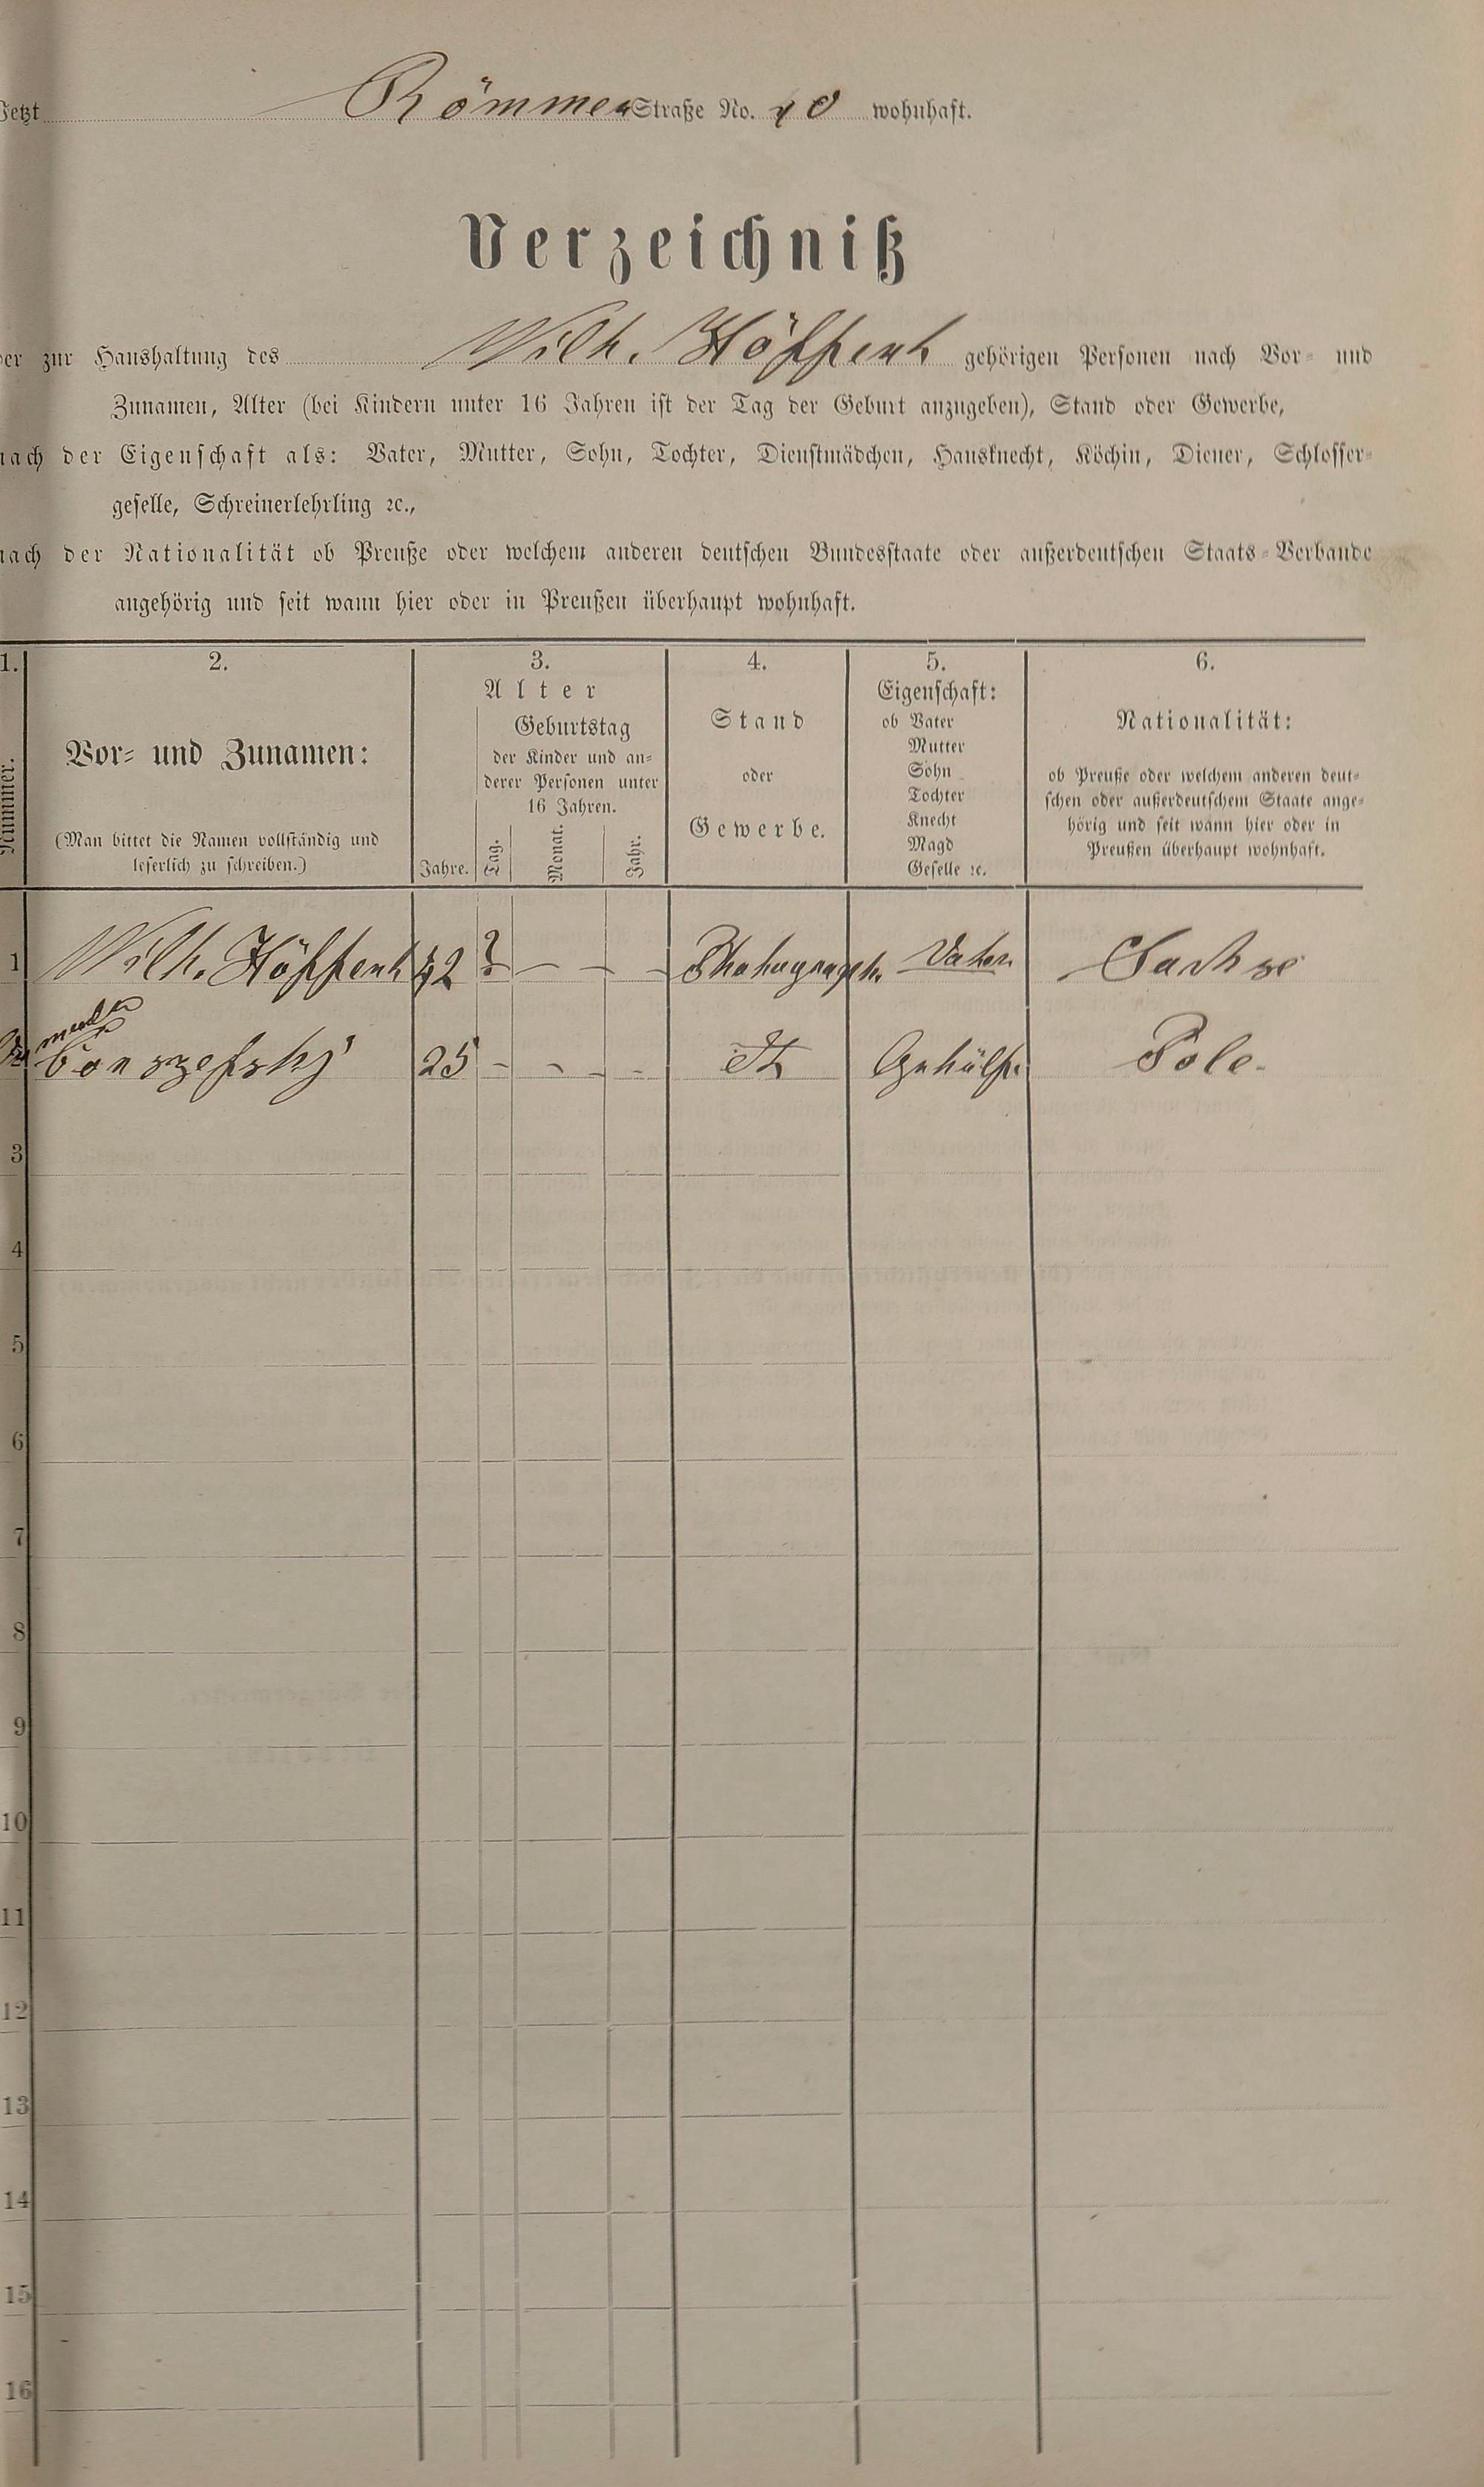 Jetzt Römmer Straße No. 40 wohnhaft.
Verzeichniß
der zur Haushaltung des Wilh. Höffert gehörigen Personen nach Vor- und
Zunamen, Alter (bei Kindern unter 16 Jahren ist der Tag der Geburt anzugeben), Stand oder Gewerbe,
nach der Eigenschaft als: Vater, Mutter, Sohn, Tochter, Dienstmädchen, Hausknecht, Köchin, Diener, Schlosser-
geselle, Schreinerlehrling ꝛc.,
nach der Nationalität ob Preuße oder welchem anderen deutschen Bundesstaate oder außerdeutschen Staats-Verbande
angehörig und seit wann hier oder in Preußen überhaupt wohnhaft.
1.
Nummer.
2.
Vor- und Zunamen:
(Man bittet die Namen vollständig und
leserlich zu schreiben.)
3.
Alter
Jahre.
Geburtstag
der Kinder und an-
derer Personen unter
16 Jahren.
Tag. Monat. Jahr.
4.
Stand
oder
Gewerbe.
5.
Eigenschaft:
ob Vater
Mutter
Sohn
Tochter
Knecht
Magd
Geselle ꝛc.
6.
Nationalität:
ob Preuße oder welchem anderen deut-
schen oder außerdeutschem Staate ange-
hörig und seit wann hier oder in
Preußen überhaupt wohnhaft.
1 Wilh. Höffert 42 ? — — — Photograph. Vater. Sachse
25 - - - - Gehülfe. Pole.
3
4
5
6
7
8
9
10
11
12
13
14
15
16